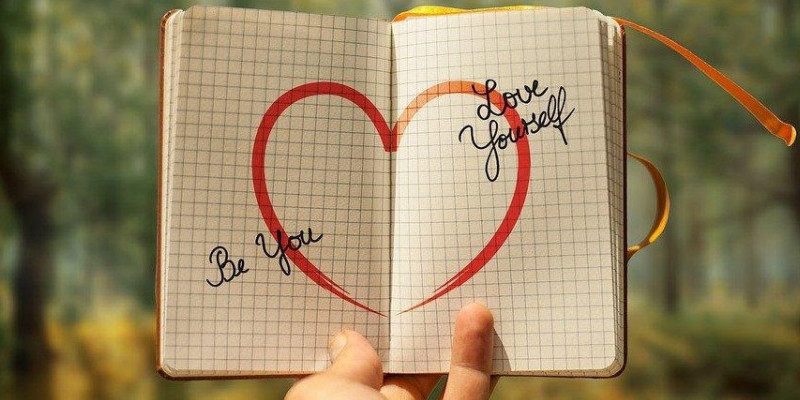 Love
Yourself
Be You